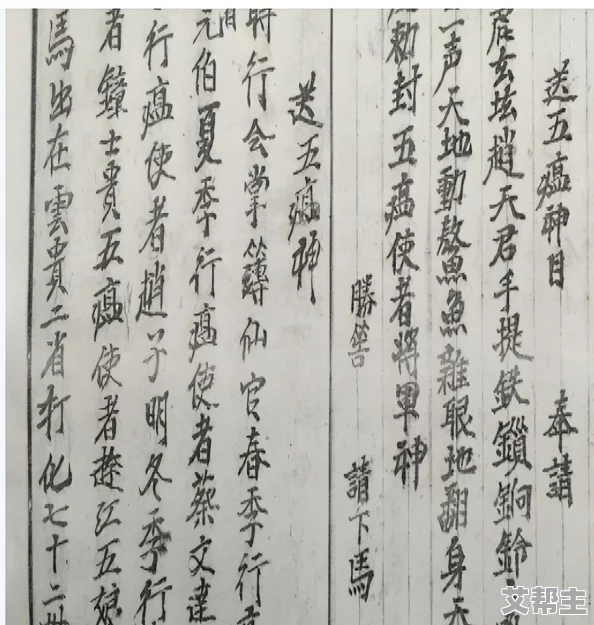 送五瘟神目 奉請
玄坛趙天君手提鉄鎖鉤鈴
一声天地動鰲魚魚雜眼地翻身天
勅封五瘟使者將軍神
勝筶 請下馬
送五瘟神
時行会掌簿仙官春季行
元伯夏季行瘟使者蔡文達
行瘟使者趙子明冬季行
者鐘士貴五瘟使者趙江五娘
馬出在雲貴二省打化七十二
艾帮主